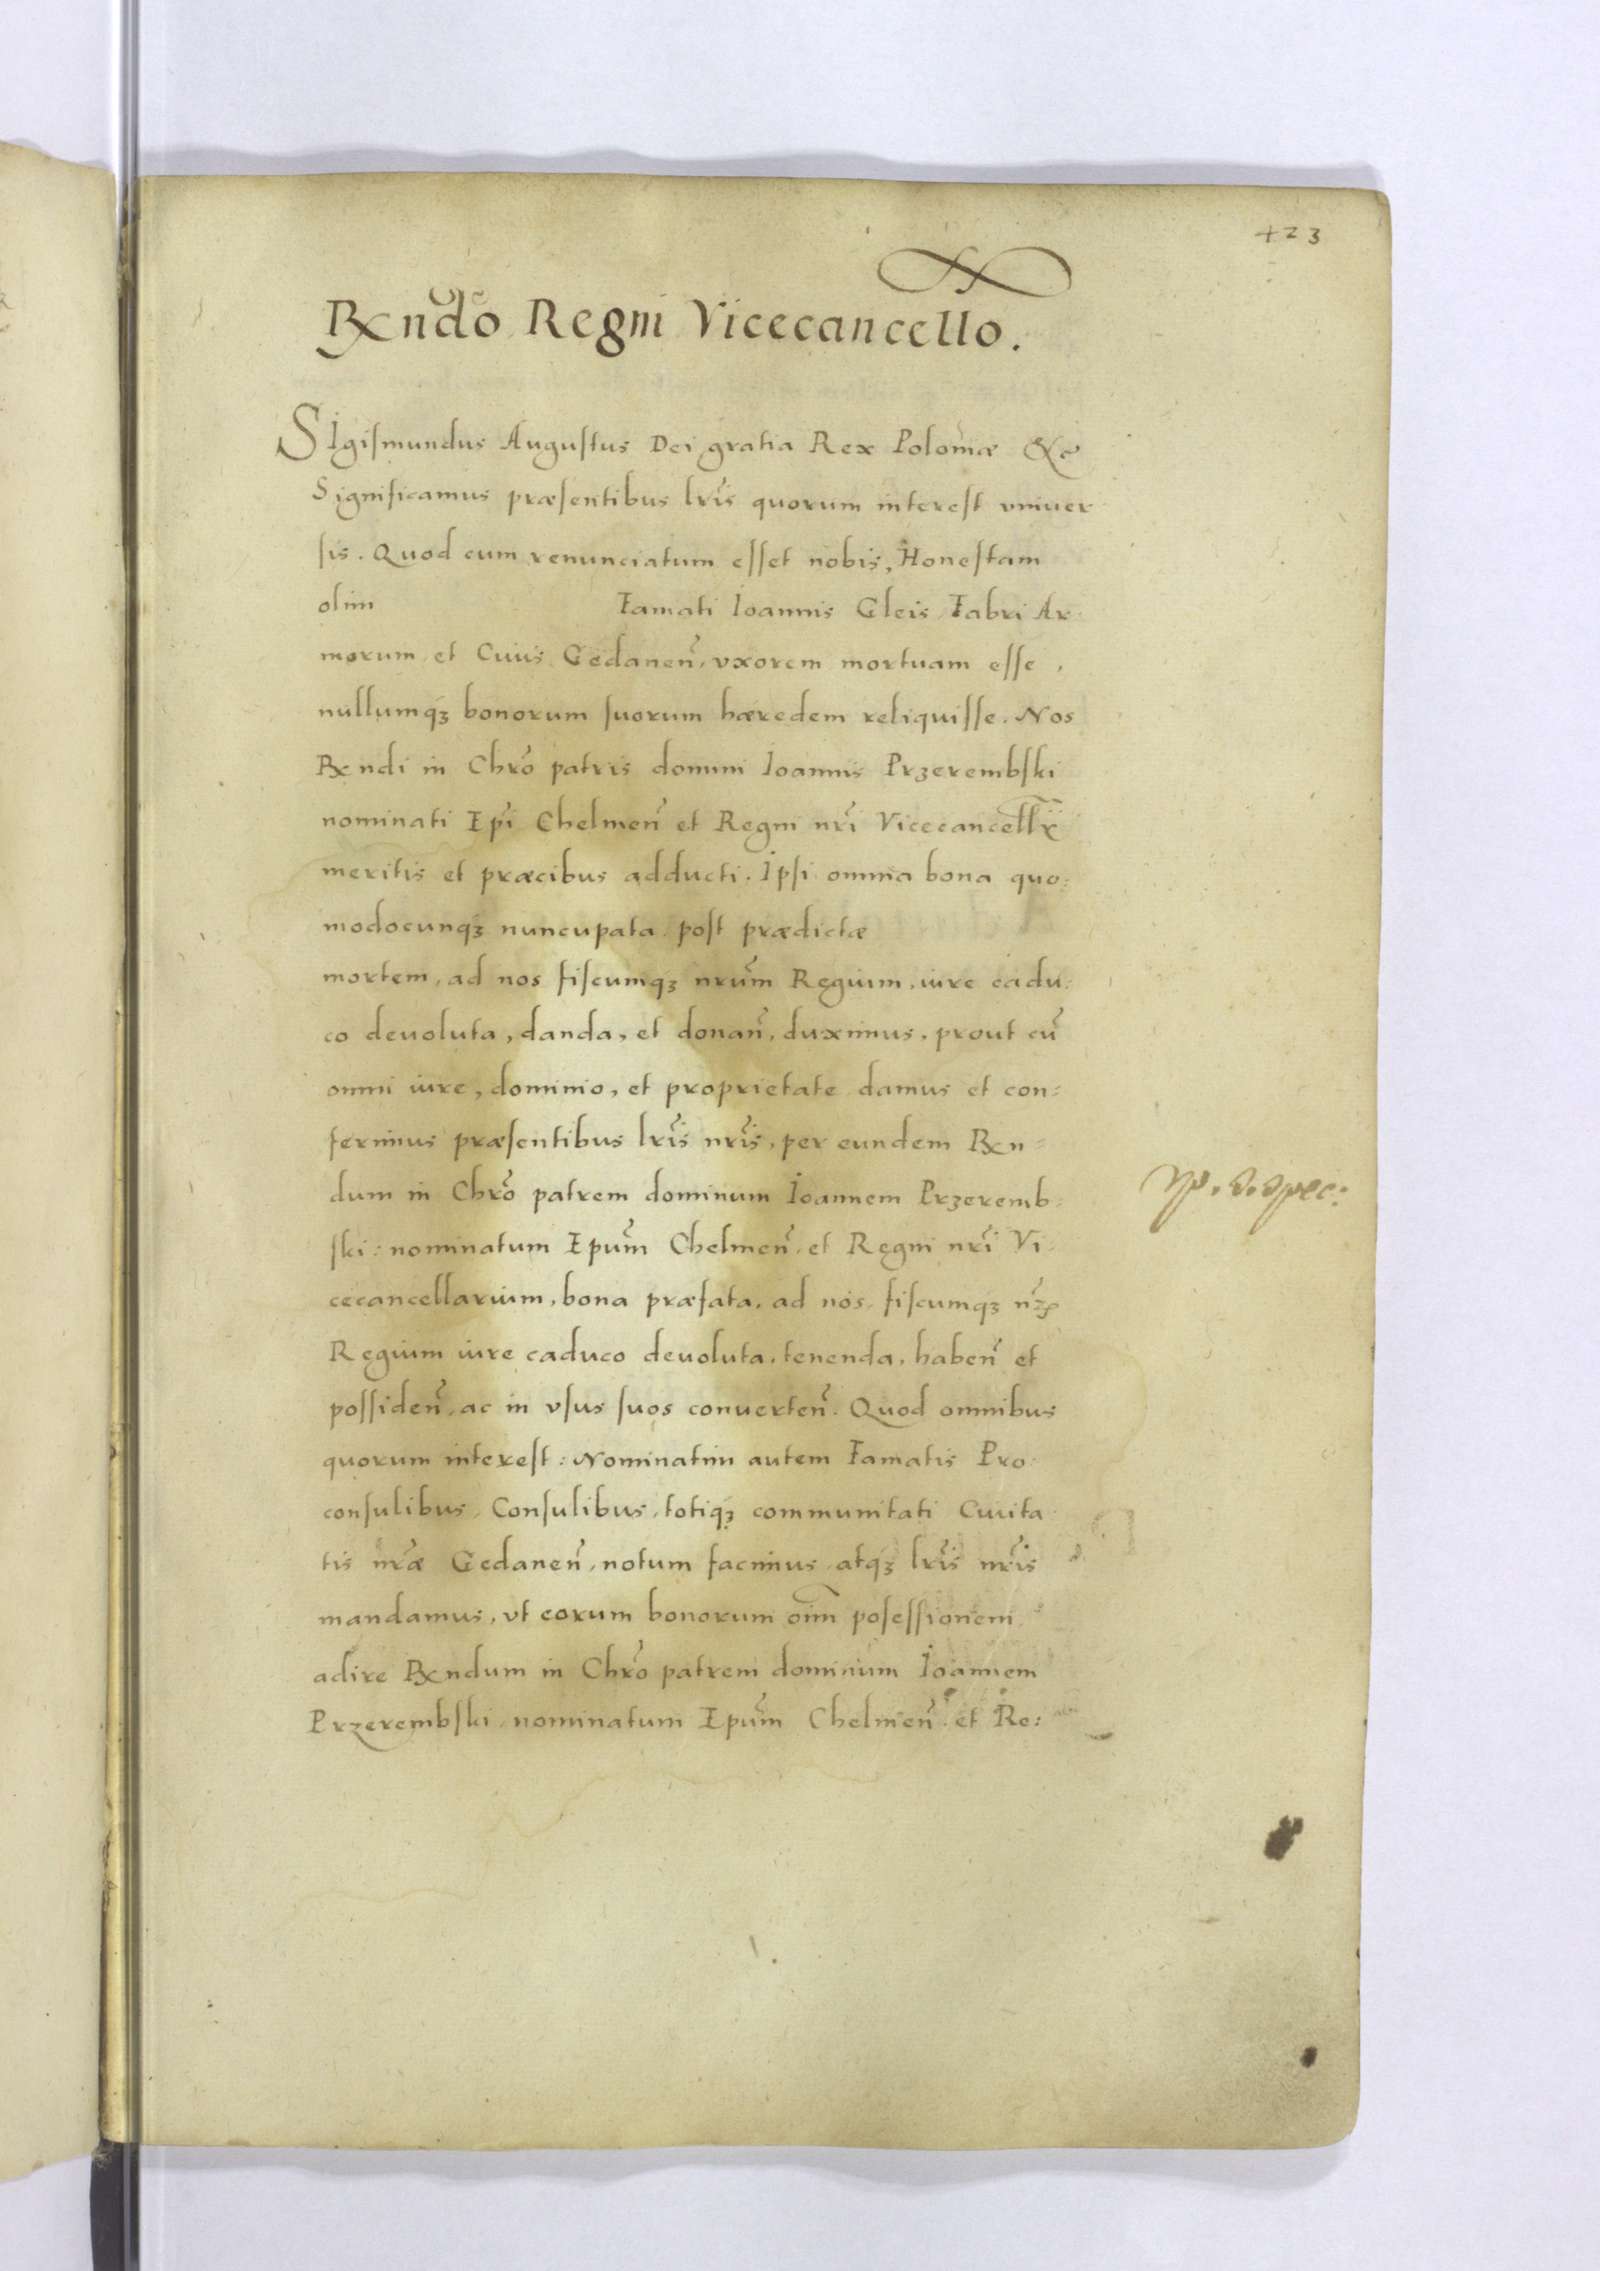 423
Rxndo Regni Vicecancello.
SIgismundus Augustus Dei gratia Rex Poloniæ &c̃
Significamus præsentibus lr̃is quorum interest vniuer
sis. Quod cum renunciatum esset nobis, Honestam
olim Famati Ioannis Gleis Fabri Ar
morum et Ciuis Gedaneñ, vxorem mortuam esse,
nullumqꝫ bonorum suorum hæredem reliquisse. Nos
Rxndi in Chr̃o patris domini Ioannis Przerembski
nominati Ep̃i Chelmeñ et Regni nr̃i Vicecancellr̃
meritis et præcibus adducti. Ipsi omnia bona quo:
modocunqꝫ nuncupata post prædictæ
mortem, ad nos fiscumqꝫ nrũm Regium, iure cadu:
co deuoluta, danda, et donañ, duximus, prout cũ
omni iure, dominio, et proprietate damus et con:
ferimus præsentibus lr̃is nr̃is, per eundem Rxn=
dum in Chr̃o patrem dominum Ioannem Przeremb:
ski: nominatum Epũm Chelmeñ, et Regni nr̃i Vi:
cecancellarium, bona præfata, ad nos, fiscumqꝫ nr̃ꝝ
Regium iure caduco deuoluta, tenenda, habeñ et
possideñ, ac in vsus suos conuerteñ. Quod omnibus
quorum interest: Nominatim autem Famatis Pro
consulibus, Consulibus, totiqꝫ communitati Ciuita
tis nr̃æ Gedaneñ, notum facimus, atqꝫ lr̃is nr̃is
mandamus, vt eorum bonorum oĩm posessionem
adire Rxndum in Chr̃o patrem dominum Ioannem
Przerembski, nominatum Epũm Chelmeñ, et Re: